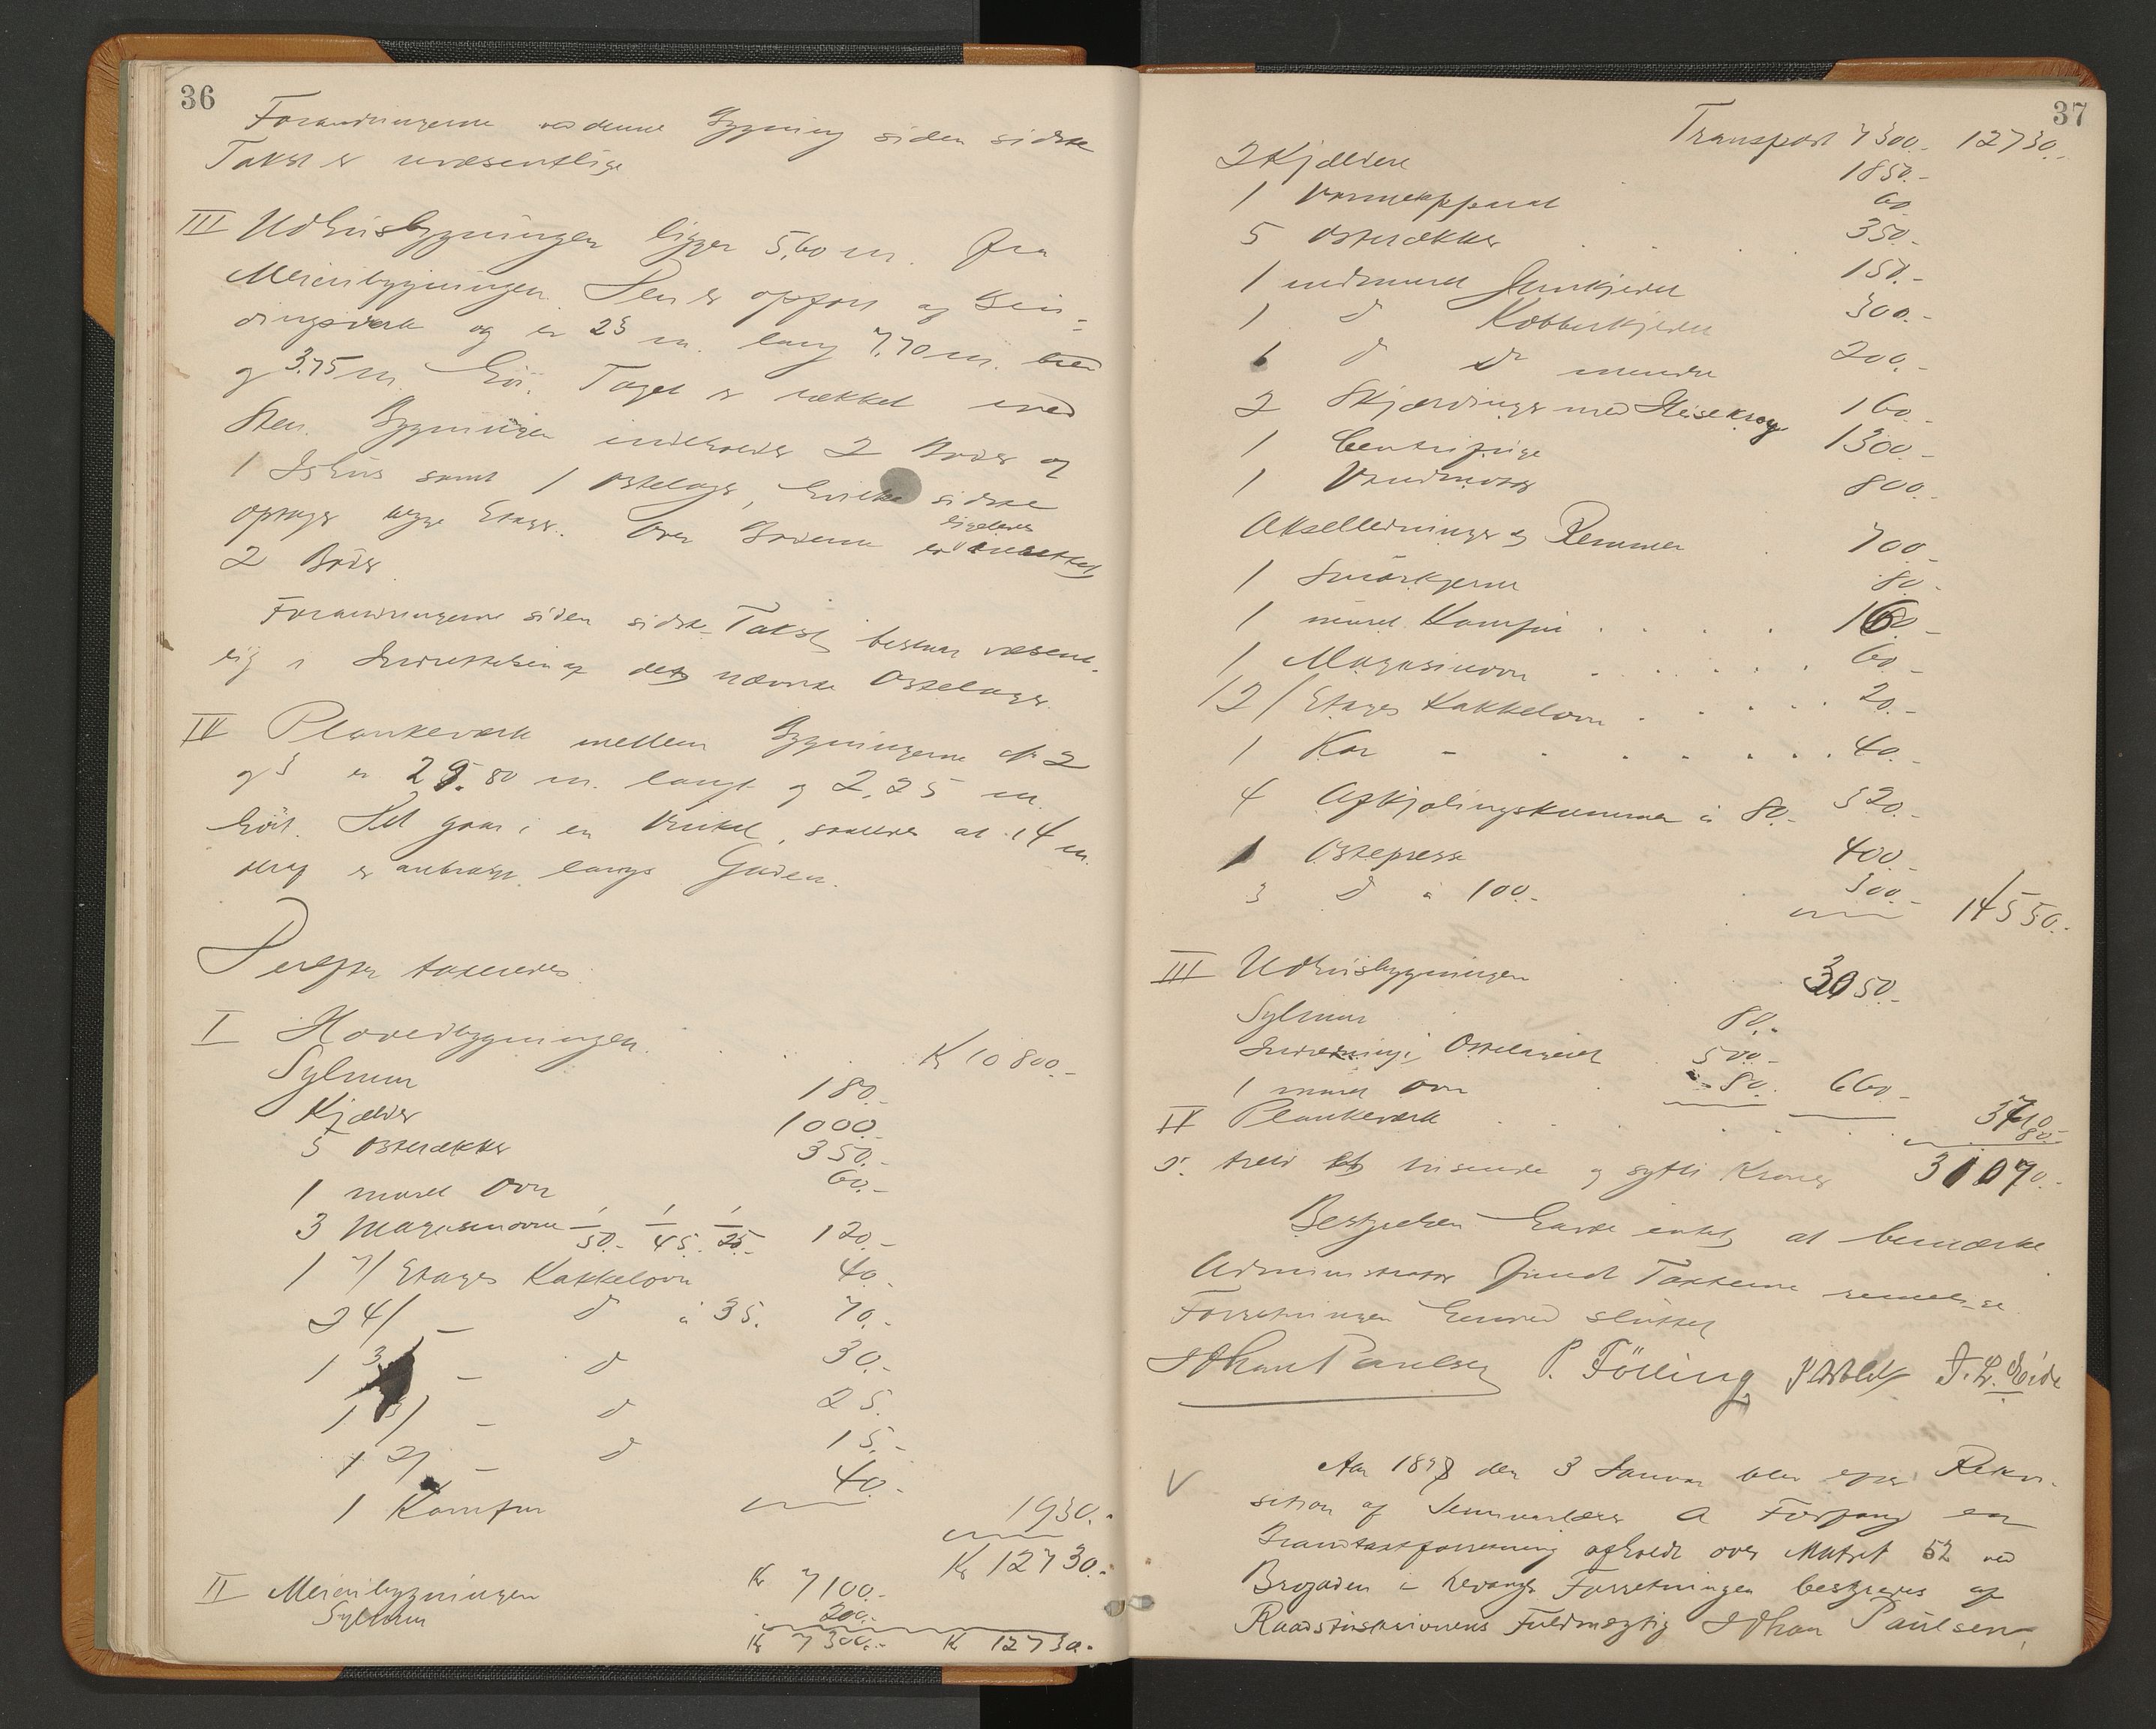 36
Forandringerne ved denne Bygning siden sidste
Takst er uvæsentlige
III Udhusbygningen ligger 5,60 m. fra
Meieribygningen. Den er opført af Bin-
dingsværk og er 23 m. lang 7,70 m. bred
og 3.75 m. høi. Taget er tækket med
Sten. Bygningen indeholder 2 Boder og
1 Ishus samt 1 Ostelager, hvilke sidste
optager begge Etager. Over Boderne er ligeledes indrettet
2 Boder
Forandringerne siden sidste Takst bestaar væsent-
lig i Indrettelsen af det nævnte Ostelager.
IV Plankeværk mellem Bygningerne No 2
og 3 er 29.80 m. langt og 2,25 m.
høit. Det gaar i en Vinkel, saaledes at 14 m.
deraf er anbragt langs Gaden.
Derefter taxeredes
I Hovedbygningen . . . K 10800.-
Sylmur 180.-
Kjælder 1000.-
5 Osterækker 350.-
1 muret Ovn 60.-
3 Magasinovne 1/50.- 1/45. 1/25.- 120.-
1 7/ Etages Kakkelovn 40.-
2 4/ - d à 35. 70.-
1 3/ - d 30.-
1 3/ - d 25.
1 2/ - d 15.-
1 Komfur 40.-
1930.-
Kr 12730.-
II Meieribygningen Kr 7100.-
Sylmur 200.-
Kr 7300.- Kr 12730.-
37
Transport 7300.- 12730.-
2 Kjældere 1850.-
1 Varmeapparat 60
5 Osterækker . . . 350.-
1 indmuret Jernkjedel 150.-
1 d Kobberkjedel 300.-
1 d d mindre 200.-
2 Skjærdinger med Heisekrog 160.-
1 Centrifuge 1300.-
1 Vandmotor 800.-
Akselledninger og Remmer . 700.-
1 Smørkjerne 80.-
1 muret Komfur . . . . 160.-
1 Magasinovn . . . . . 60.-
1 2/ Etages Kakkelovn . . . . . 20.-
1 Kar - . . . . . . 40.-
4 Afkjølingskummer à 80.- 320.-
1 Ostepresse 400.-
3 d à 100.- . 300.-
14550.-
III Udhusbygningen . . . 3050.-
Sylmur . 80.-
Indretning i Ostelageret . 500.-
1 muret Ovn . 80. 660.-
3710.-
IV Plankeværk . . . . . 80.-
31070.-
er tretti et tusinde og sytti Kroner
Bestyrelsen havde intet at bemærke
Administrator fandt Taxterne rimelige
Forretningen hermed sluttet
Johan Paulsen P. Fölling J. L. Eide
V Aar 1898 den 3 Januar blev efter Rekvi-
sition af Seminarlærer A Forfang en
Brandtaxtforretning afholdt over Matrt 52 ved
Brogaden i Levanger Forretningen bestyredes af
Raadstueskriverens Fuldmægtig Johan Paulsen,